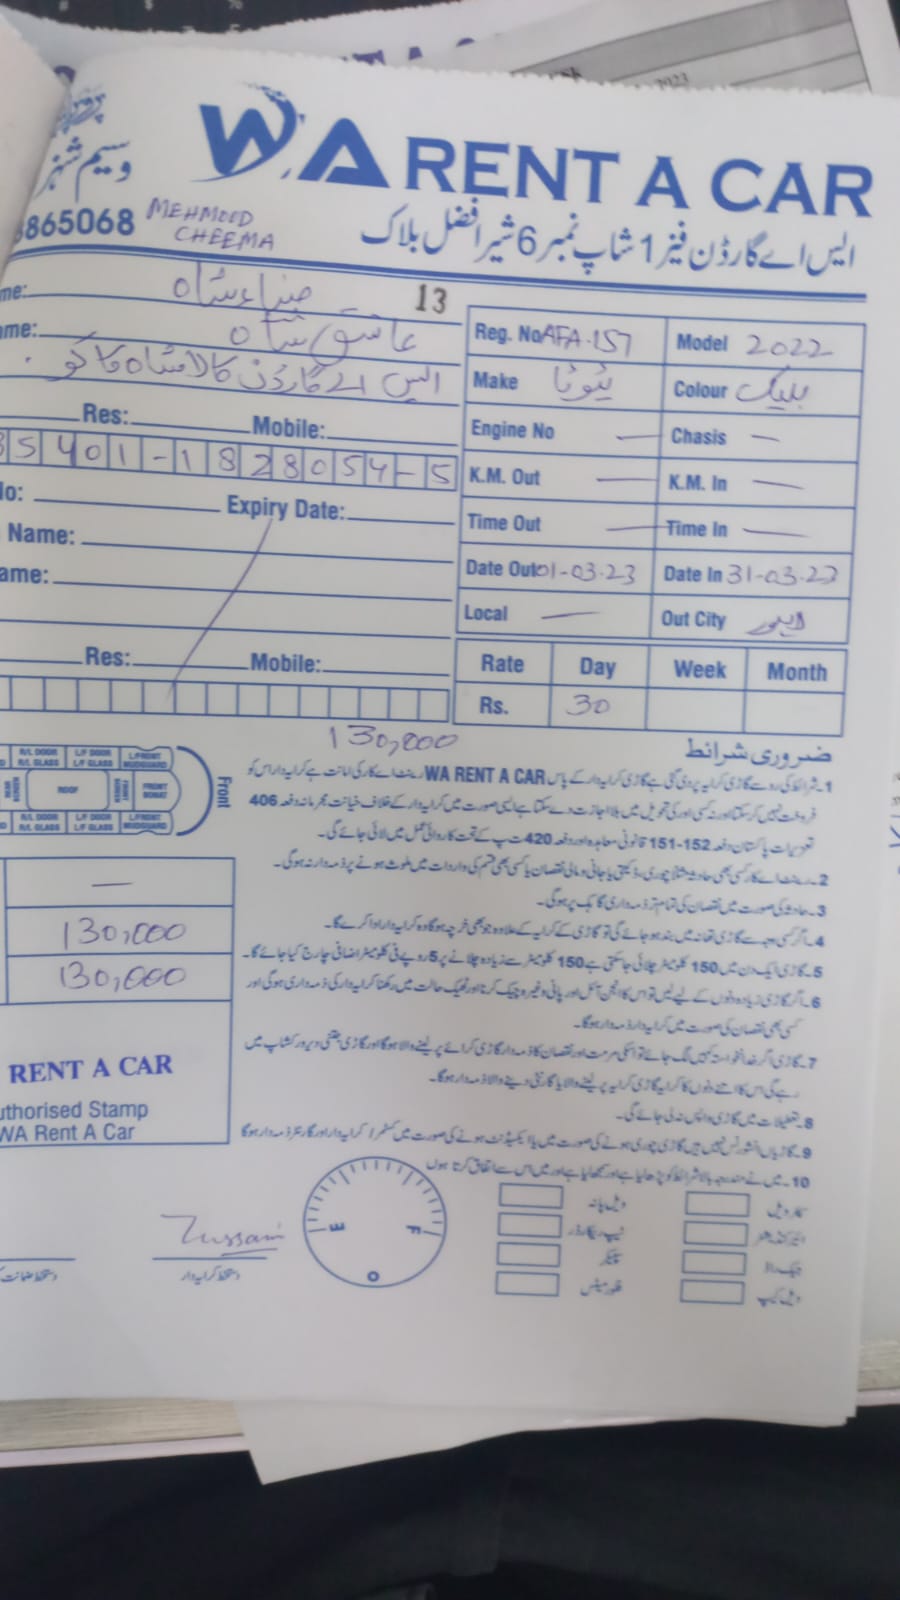 2023
وسیم شہز
WA RENT A CAR
865068 MEHMOOD CHEEMA
ایس اے گارڈن فیز 1 شاپ نمبر 6 شیر افضل بلاک
me: ضیاء شاہ 13
ame: عاشق شاہ
ایس اے گارڈن کالا شاہ کاکو
Res: Mobile:
35401-1828054-5
No: Expiry Date:
Name:
ame:
Res: Mobile:
Reg. No AFA-157 Model 2022
Make ٹیوٹا Colour بلیک
Engine No — Chasis —
K.M. Out — K.M. In —
Time Out — Time In —
Date Out 01-03-23 Date In 31-03-23
Local — Out City لاہور
Rate Day Week Month
Rs. 30
130,000
R/L DOOR L/F DOOR L/FRONT
R/L GLASS L/F GLASS MUDGUARD
ROOF FRONT BONAT Front
R/L DOOR L/F DOOR L/FRONT
R/L GLASS L/F GLASS MUDGUARD
—
130,000
130,000
RENT A CAR
uthorised Stamp
WA Rent A Car
ضروری شرائط
1۔ شرائط کی رو سے گاڑی کرایہ پر دی گئی ہے گاڑی کرایہ دار کے پاس WA RENT A CAR رینٹ اے کار کی امانت ہے کرایہ دار اس کو
فروخت نہیں کر سکتا اور نہ کسی اور کی تحویل میں بلا اجازت دے سکتا ہے ایسی صورت میں کرایہ دار کے خلاف خیانت مجرمانہ دفعہ 406
تعزیرات پاکستان دفعہ 152-151 قانونی معاہدہ اور دفعہ 420 ت پ کے تحت کاروائی عمل میں لائی جائے گی۔
2۔ رینٹ اے کار کسی بھی حادثہ مثلاً چوری، ڈکیتی یا جانی و مالی نقصان یا کسی بھی قسم کی واردات میں ملوث ہونے پر ذمہ دار نہ ہوگی۔
3۔ حادثہ کی صورت میں نقصان کی تمام تر ذمہ داری گاہک پر ہوگی۔
4۔ اگر کسی وجہ سے گاڑی تھانہ میں بند ہو جائے گی تو گاڑی کے کرایہ کے علاوہ جو بھی خرچہ ہوگا وہ کرایہ دار ادا کرے گا۔
5۔ گاڑی ایک دن میں 150 کلومیٹر چلائی جا سکتی ہے 150 کلومیٹر سے زیادہ چلانے پر 5 روپے فی کلومیٹر اضافی چارج کیا جائے گا۔
6۔ اگر گاڑی زیادہ دنوں کے لیے لیں تو اس کا انجن آئل اور پانی وغیرہ چیک کرنا اور ٹھیک حالت میں رکھنا کرایہ دار کی ذمہ داری ہوگی اور
کسی بھی نقصان کی صورت میں کرایہ دار ذمہ دار ہوگا۔
7۔ گاڑی اگر خدانخواستہ کہیں لگ جائے تو اسکی مرمت اور نقصان کا ذمہ دار گاڑی کرائے پر لینے والا ہوگا اور گاڑی جتنی دیر ورکشاپ میں
رہے گی اس کا اتنے دنوں کا کرایہ گاڑی کرایہ پر لینے والا یا گارنٹی دینے والا ذمہ دار ہوگا۔
8۔ تعطیلات میں گاڑی واپس نہ لی جائے گی۔
9۔ گاڑیاں انشورنس نہیں ہیں گاڑی چوری ہونے کی صورت میں یا ایکسیڈنٹ ہونے کی صورت میں کسٹمر / کرایہ دار اور گارنٹر ذمہ دار ہوگا
10۔ میں نے مندرجہ بالا شرائط کو پڑھ لیا ہے اور سمجھ لیا ہے اور میں اس سے اتفاق کرتا ہوں
Hussain
دستخط کرایہ دار
دستخط ضمانت
E F
O
ویل پانہ
ٹیپ ریکارڈر
سپیکر
فلور میٹس
کار ویل
ائیر کنڈیشنر
جیک راڈ
ویل کیپ